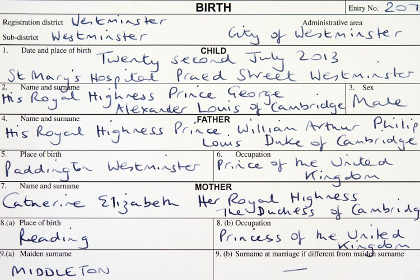 BIRTH Entry No. 207
Registration district Westminster Administrative area
Sub-district Westminster City of Westminster
1. Date and place of birth CHILD
Twenty second July 2013
St Mary's Hospital Praed Street Westminster
2. Name and surname 3. Sex
His Royal Highness Prince George Male
Alexander Louis of Cambridge
4. Name and surname FATHER
His Royal Highness Prince William Arthur Philip
Louis Duke of Cambridge
5. Place of birth 6. Occupation
Paddington Westminster Prince of the United
Kingdom
7. Name and surname MOTHER
Catherine Elizabeth Her Royal Highness
The Duchess of Cambridg
8.(a) Place of birth 8. (b) Occupation
Reading Princess of the United
Kingdom
9.(a) Maiden surname 9. (b) Surname at marriage if different from maiden surname
MIDDLETON —